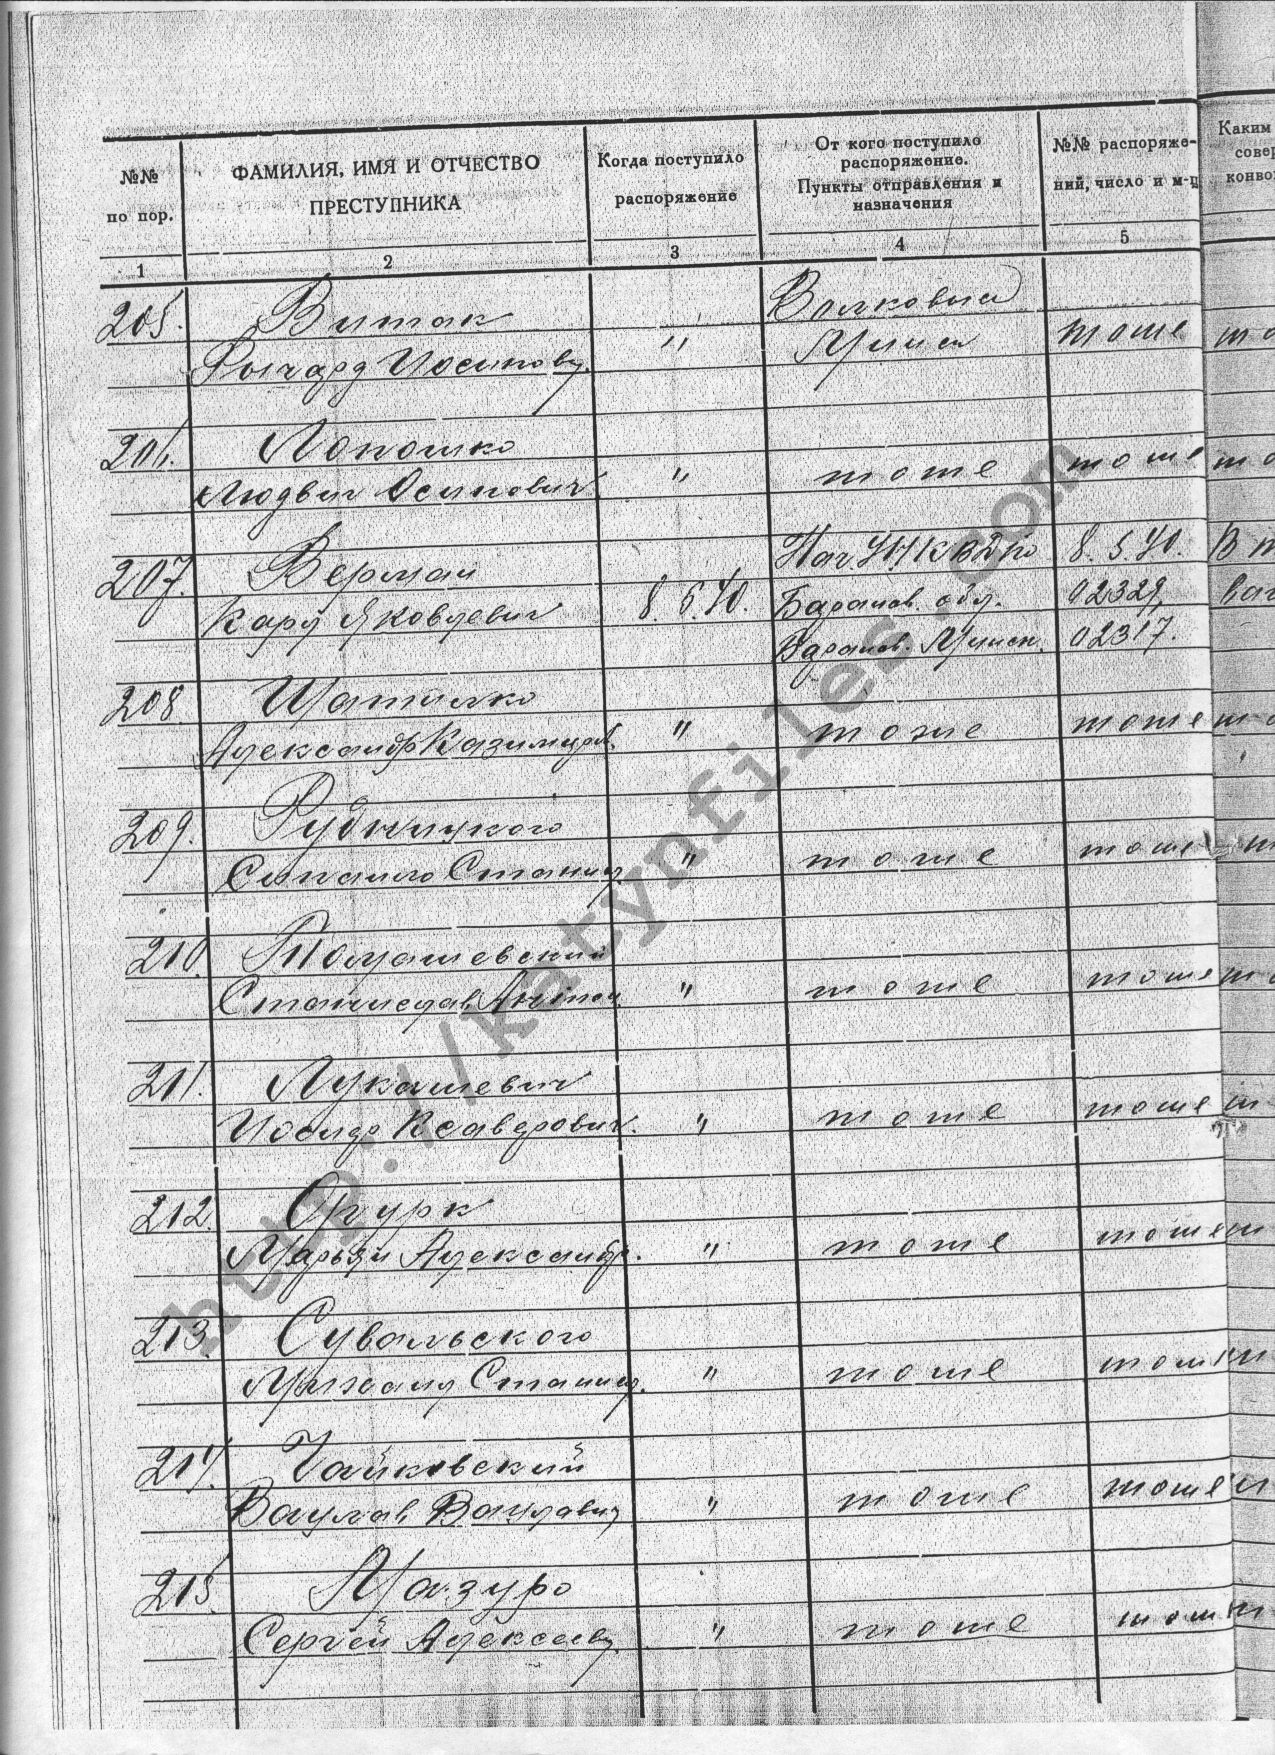 №№ по пор.
ФАМИЛИЯ, ИМЯ И ОТЧЕСТВО ПРЕСТУПНИКА
Когда поступило распоряжение
От кого поступило распоряжение. Пункты отправления и назначения
№№ распоряжений, число и м-ц
Каким
совер
конво
1
2
3
4
5
205. Витак Волковыск
Ричард Иосипови. " Минск тоже то
206. Лопошко
Людвиг Осипович " тоже тоже то
207. Верман Нач УНКВД по 8.5.40. В
Карл Яковлевич 8.6.40. Баранов. обл. 02329,
Баранов. Минск. 02317.
208. Шатилко
Александр Казимиров. " тоже тоже то
209. Рудницкого
Стани " тоже тоже
210. Томашевский
Станислав Антон " тоже тоже то
211. Лукашевич
Иосиф Ксаверович. " тоже тоже
212. Огурк
Марьян Александр. " тоже тоже
213. Сувальского
Михаил Станисл. " тоже
214. Чайковский
Вацлав Вацлавич " тоже тоже
215. Мазуро
Сергей Алексеев " тоже
http://katynfiles.com